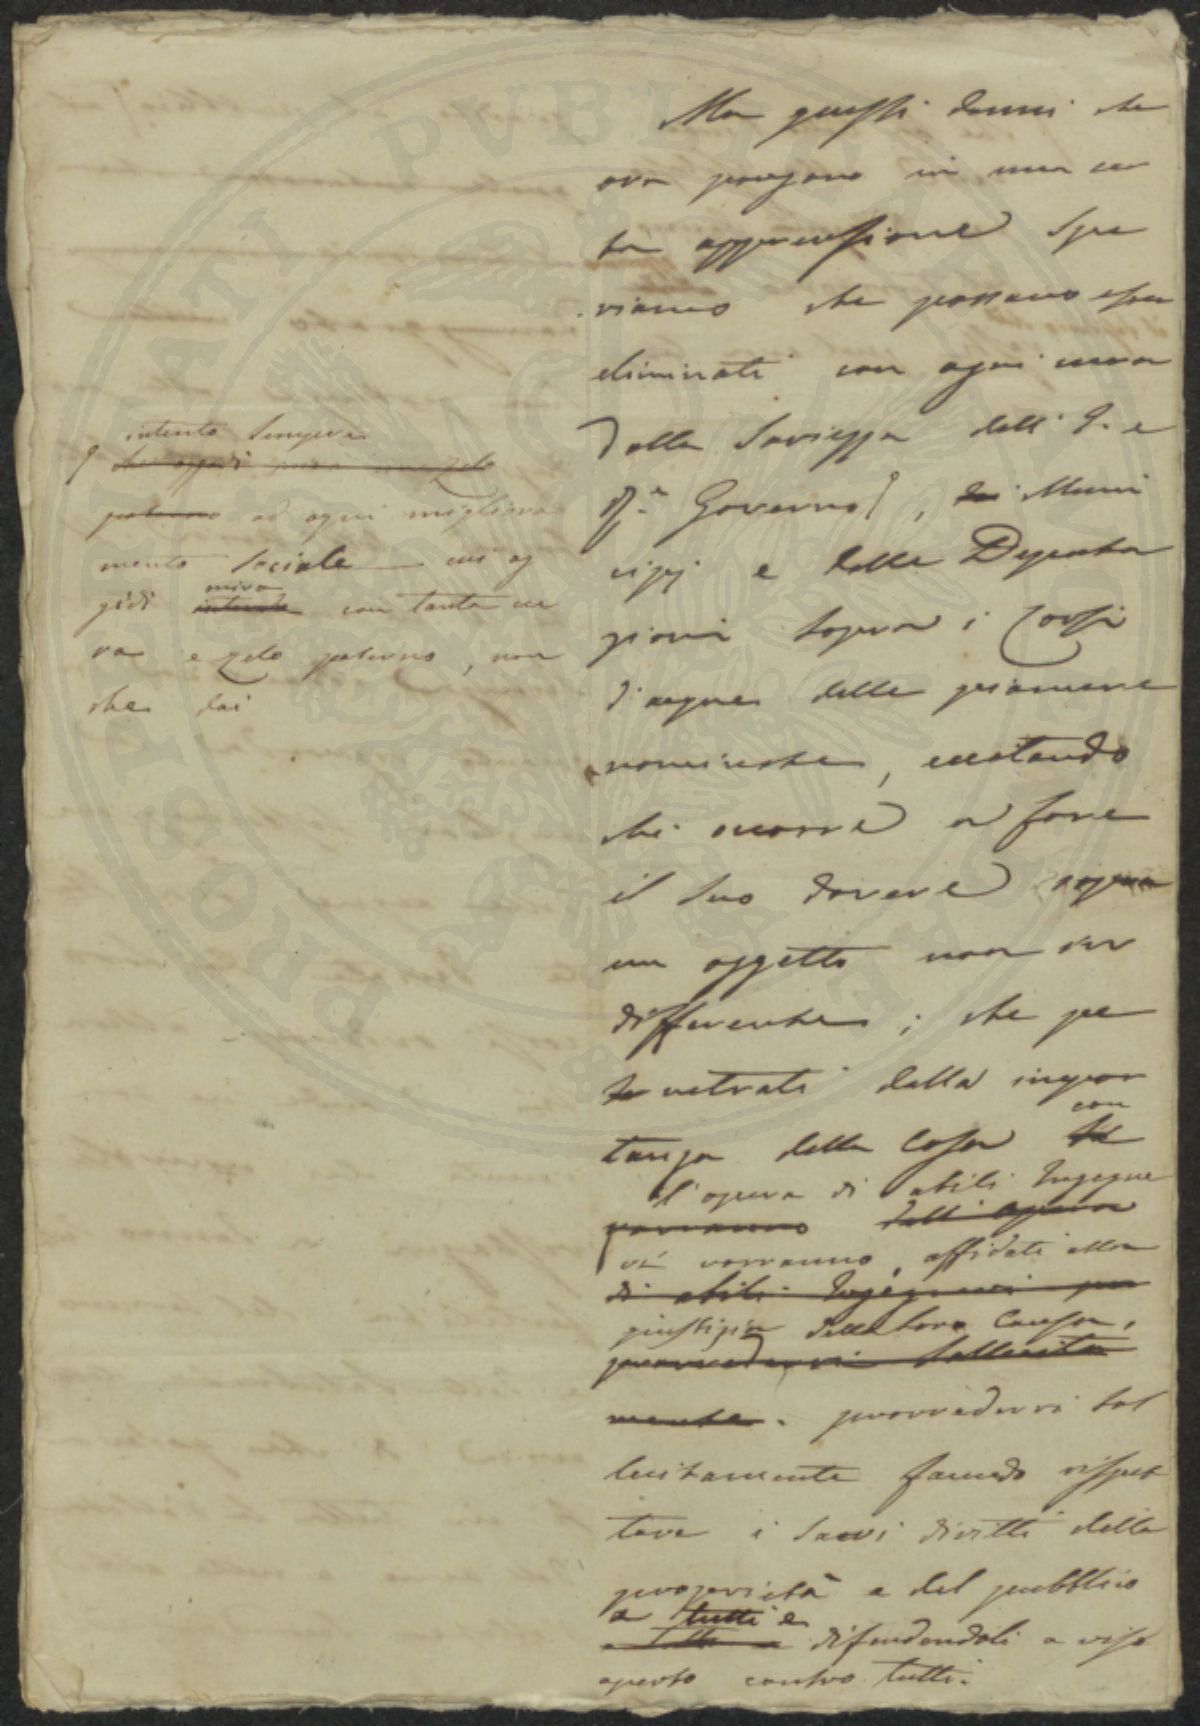 Ma questi danni che
ora pongono in una cer
ta apprensione spe
riamo che possano esser
eliminati con ogni cura
dalla Saviezza dell' I. e
R.e Governo, dei Muni
cipj e delle Deputa
zioni sopra i Corsi
d'acque delle
nominate, eccitando
chi occorre a fare
il suo dovere sopra
un oggetto non in
differente; che pe
te netrati dalla impor
tanza della Cosa con
l'opera di abili Ingegne
vorranno dell'opera
ri vorranno, affidati alla
di abili Ingegneri per
giustizia della loro Causa,
provvedervi sollecita
mente. provvedervi sol
lecitamente facendo rispet
tare i sacri diritti della
proprietà e del pubblico
a tutti e
difendendoli a viso
aperto contro tutti.
intento sempre
paterno ad ogni migliora
mento sociale cui og
gidì mira intende con tanta cu
ra e zelo paterno, non
che dai
PROSPERITATI PVBLICAE